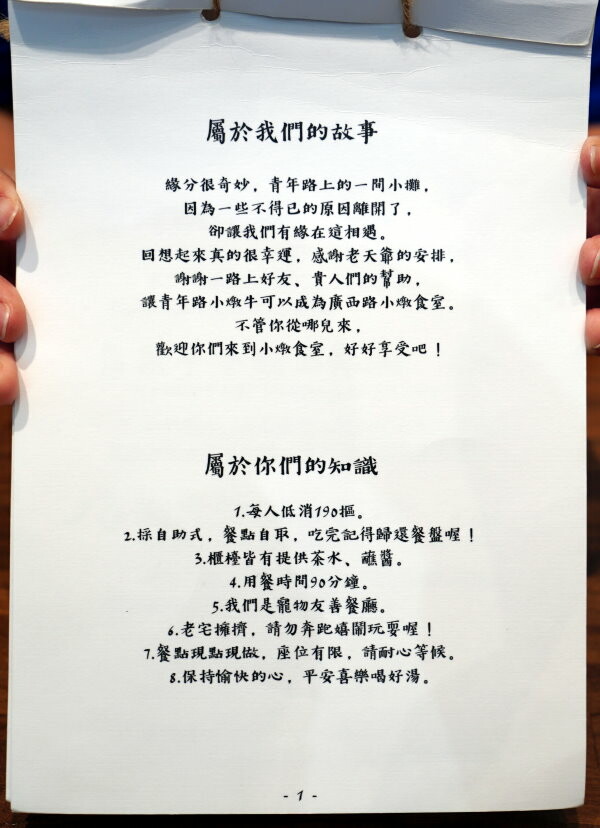 屬於我們的故事
緣分很奇妙，青年路上的一間小攤，
因為一些不得已的原因離開了，
卻讓我們有緣在這相遇。
回想起來真的很幸運，感謝老天爺的安排，
謝謝一路上好友、貴人們的幫助，
讓青年路小燉牛可以成為廣西路小燉食室。
不管你從哪兒來，
歡迎你們來到小燉食室，好好享受吧！
屬於你們的知識
1.每人低消190摳。
2.採自助式，餐點自取，吃完記得歸還餐盤喔！
3.櫃檯皆有提供茶水、蘸醬。
4.用餐時間90分鐘。
5.我們是寵物友善餐廳。
6.老宅擁擠，請勿奔跑嬉鬧玩耍喔！
7.餐點現點現做，座位有限，請耐心等候。
8.保持愉快的心，平安喜樂喝好湯。
- 1 -